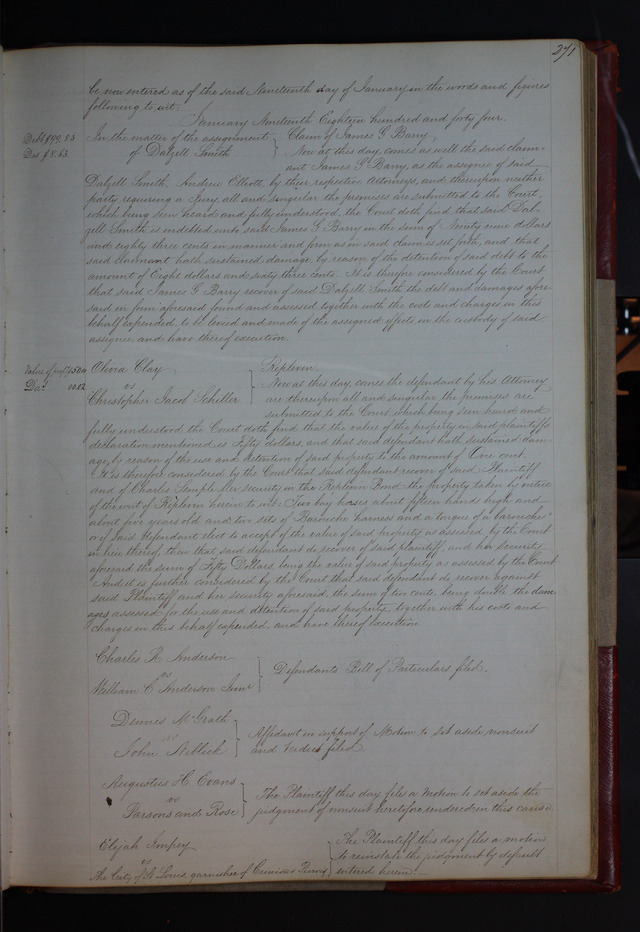 271
be now entered as of the said Nineteenth day of January in the words and figures
following to wit:
January Nineteenth Eighteen hundred and forty four.
Debt $99.83
Das $8.63
In the matter of the assignment
of Dalzell Smith
Claim of James G Barry
Now at this day comes as well the said claim-
ant James G Barry, as the assignee of said
Dalzell Smith, Andrew Elliott, by their respective Attorneys, and thereupon neither
party requiring a Jury all and singular the premises are submitted to the Court,
which being seen heard and fully understood, the Court doth find that said Dal-
zell Smith is indebted unto said James G Barry in the sum of Ninety nine dollars
and eighty three cents in manner and form as in said claim is set forth, and that
said claimant hath sustained damage by reason of the detention of said debt to the
amount of Eight dollars and sixty three cents. It is therefore considered by the Court
that said James G Barry recover of said Dalzell Smith the debt and damages afore-
said in form aforesaid found and assessed together with the costs and charges in this
behalf expended, to be levied and made of the assigned effects in the custody of said
assignee, and have thereof execution.
Value of 
Olivia Clay
vs
Christopher Jacob Schiller
Replevin
Now at this day, comes the defendant by his Attorney
and thereupon all and singular the premises are
submitted to the Court which being seen heard and
fully understood the Court doth find that the value of the property in said plaintiffs
declaration mentioned, is Fifty dollars, and that said defendant hath sustained dam-
age, by reason of the use and detention of said property to the amount of One cent.
It is therefore considered by the Court that said defendant recover of said Plaintiff
and of Charles Semple her security in the Replevin Bond the property taken by virtue
of the writ of Replevin herein to wit: Two bay horses about fifteen hands high and
about five years old and two sets of Barouche harness and a tongue of a barouche
or if said defendant elect to accept of the value of said property as assessed, by the Court
in lieu thereof, then that said defendant do recover of said plaintiff, and her security
aforesaid the sum of Fifty Dollars, being the value of said property as assessed by the Court
And it is further considered by the Court that said defendant do recover against
said Plaintiff and her security aforesaid, the sum of two cents, being double the dam-
ages assessed for the use and detention of said property, together with his costs and
charges in this behalf expended, and have thereof Execution
Charles R Anderson
vs
William C Anderson Junr
Defendants Bill of Particulars filed.
Dennis McGrath
vs
John
Affidavit in support of Motion to set aside nonsuit
and verdict filed
Augustus H Evans
vs
Parsons and Rose
The Plaintiff this day files a Motion to set aside the
judgment of nonsuit heretofore rendered in this cause.
Elijah Impey
vs
The City of St Louis, garnishee of
The Plaintiff this day files a motion
to reinstate the judgment by default
entered herein.